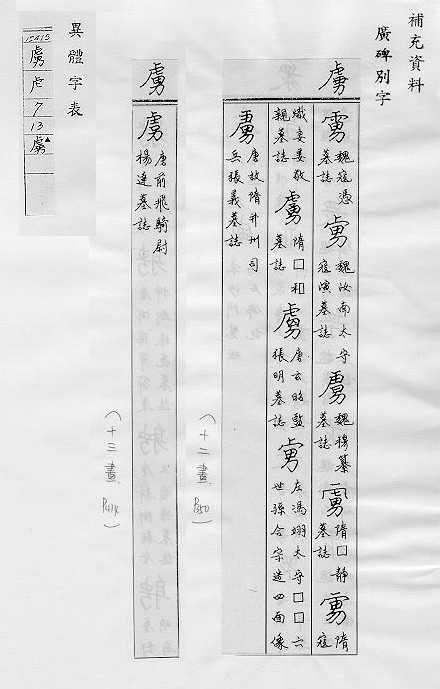 補充資料
廣碑別字
虜
虜魏寇憑墓誌 虜魏汝南太守寇演墓誌 虜魏穆纂墓誌 虜隋□靜墓誌 虜隋寇
熾妻姜敬親墓誌 虜隋□和墓誌 虜唐玄昭監張明墓誌 虜左馮翊太守□□六世孫令宗造四面像
虜唐故隋并州司兵張義墓誌
(十二畫 P350)
虜
虜唐前飛騎尉楊達墓誌
(十三畫 P414)
異體字表
15415
虜
虍
7
13
虜